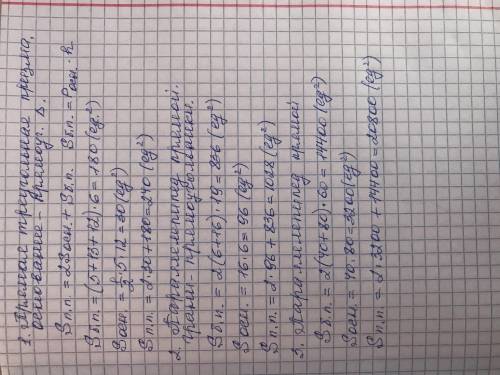 1. Прямая треугольная призма,
основание - прямоуг. Δ.
Sп.п. = 2Sосн. + Sб.п. Sб.п. = Pосн. · h
Sб.п. = (5+13+12)·6 = 180 (ед.²)
Sосн. = 1/2·5·12 = 30 (ед²)
Sп.п. = 2·30+180 = 240 (ед²)
2. Параллелепипед прямой.
грани - прямоугольники.
Sб.п. = 2(6+16)·19 = 836 (ед²)
Sосн. = 16·6 = 96 (ед²)
Sп.п. = 2·96 + 836 = 1028 (ед²)
3. Параллелепипед прямой
Sб.п. = 2(40+80)·60 = 14400 (ед²)
Sосн. = 40·80 = 3200 (ед²)
Sп.п. = 2·3200 + 14400 = 20800 (ед²)